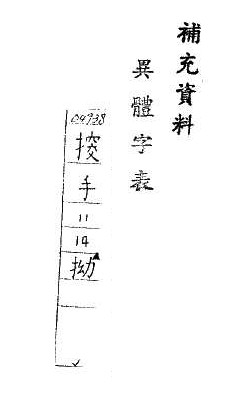 補充資料
異體字表
手
11
14
拗